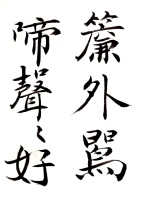 簾外鸎
啼聲〻好